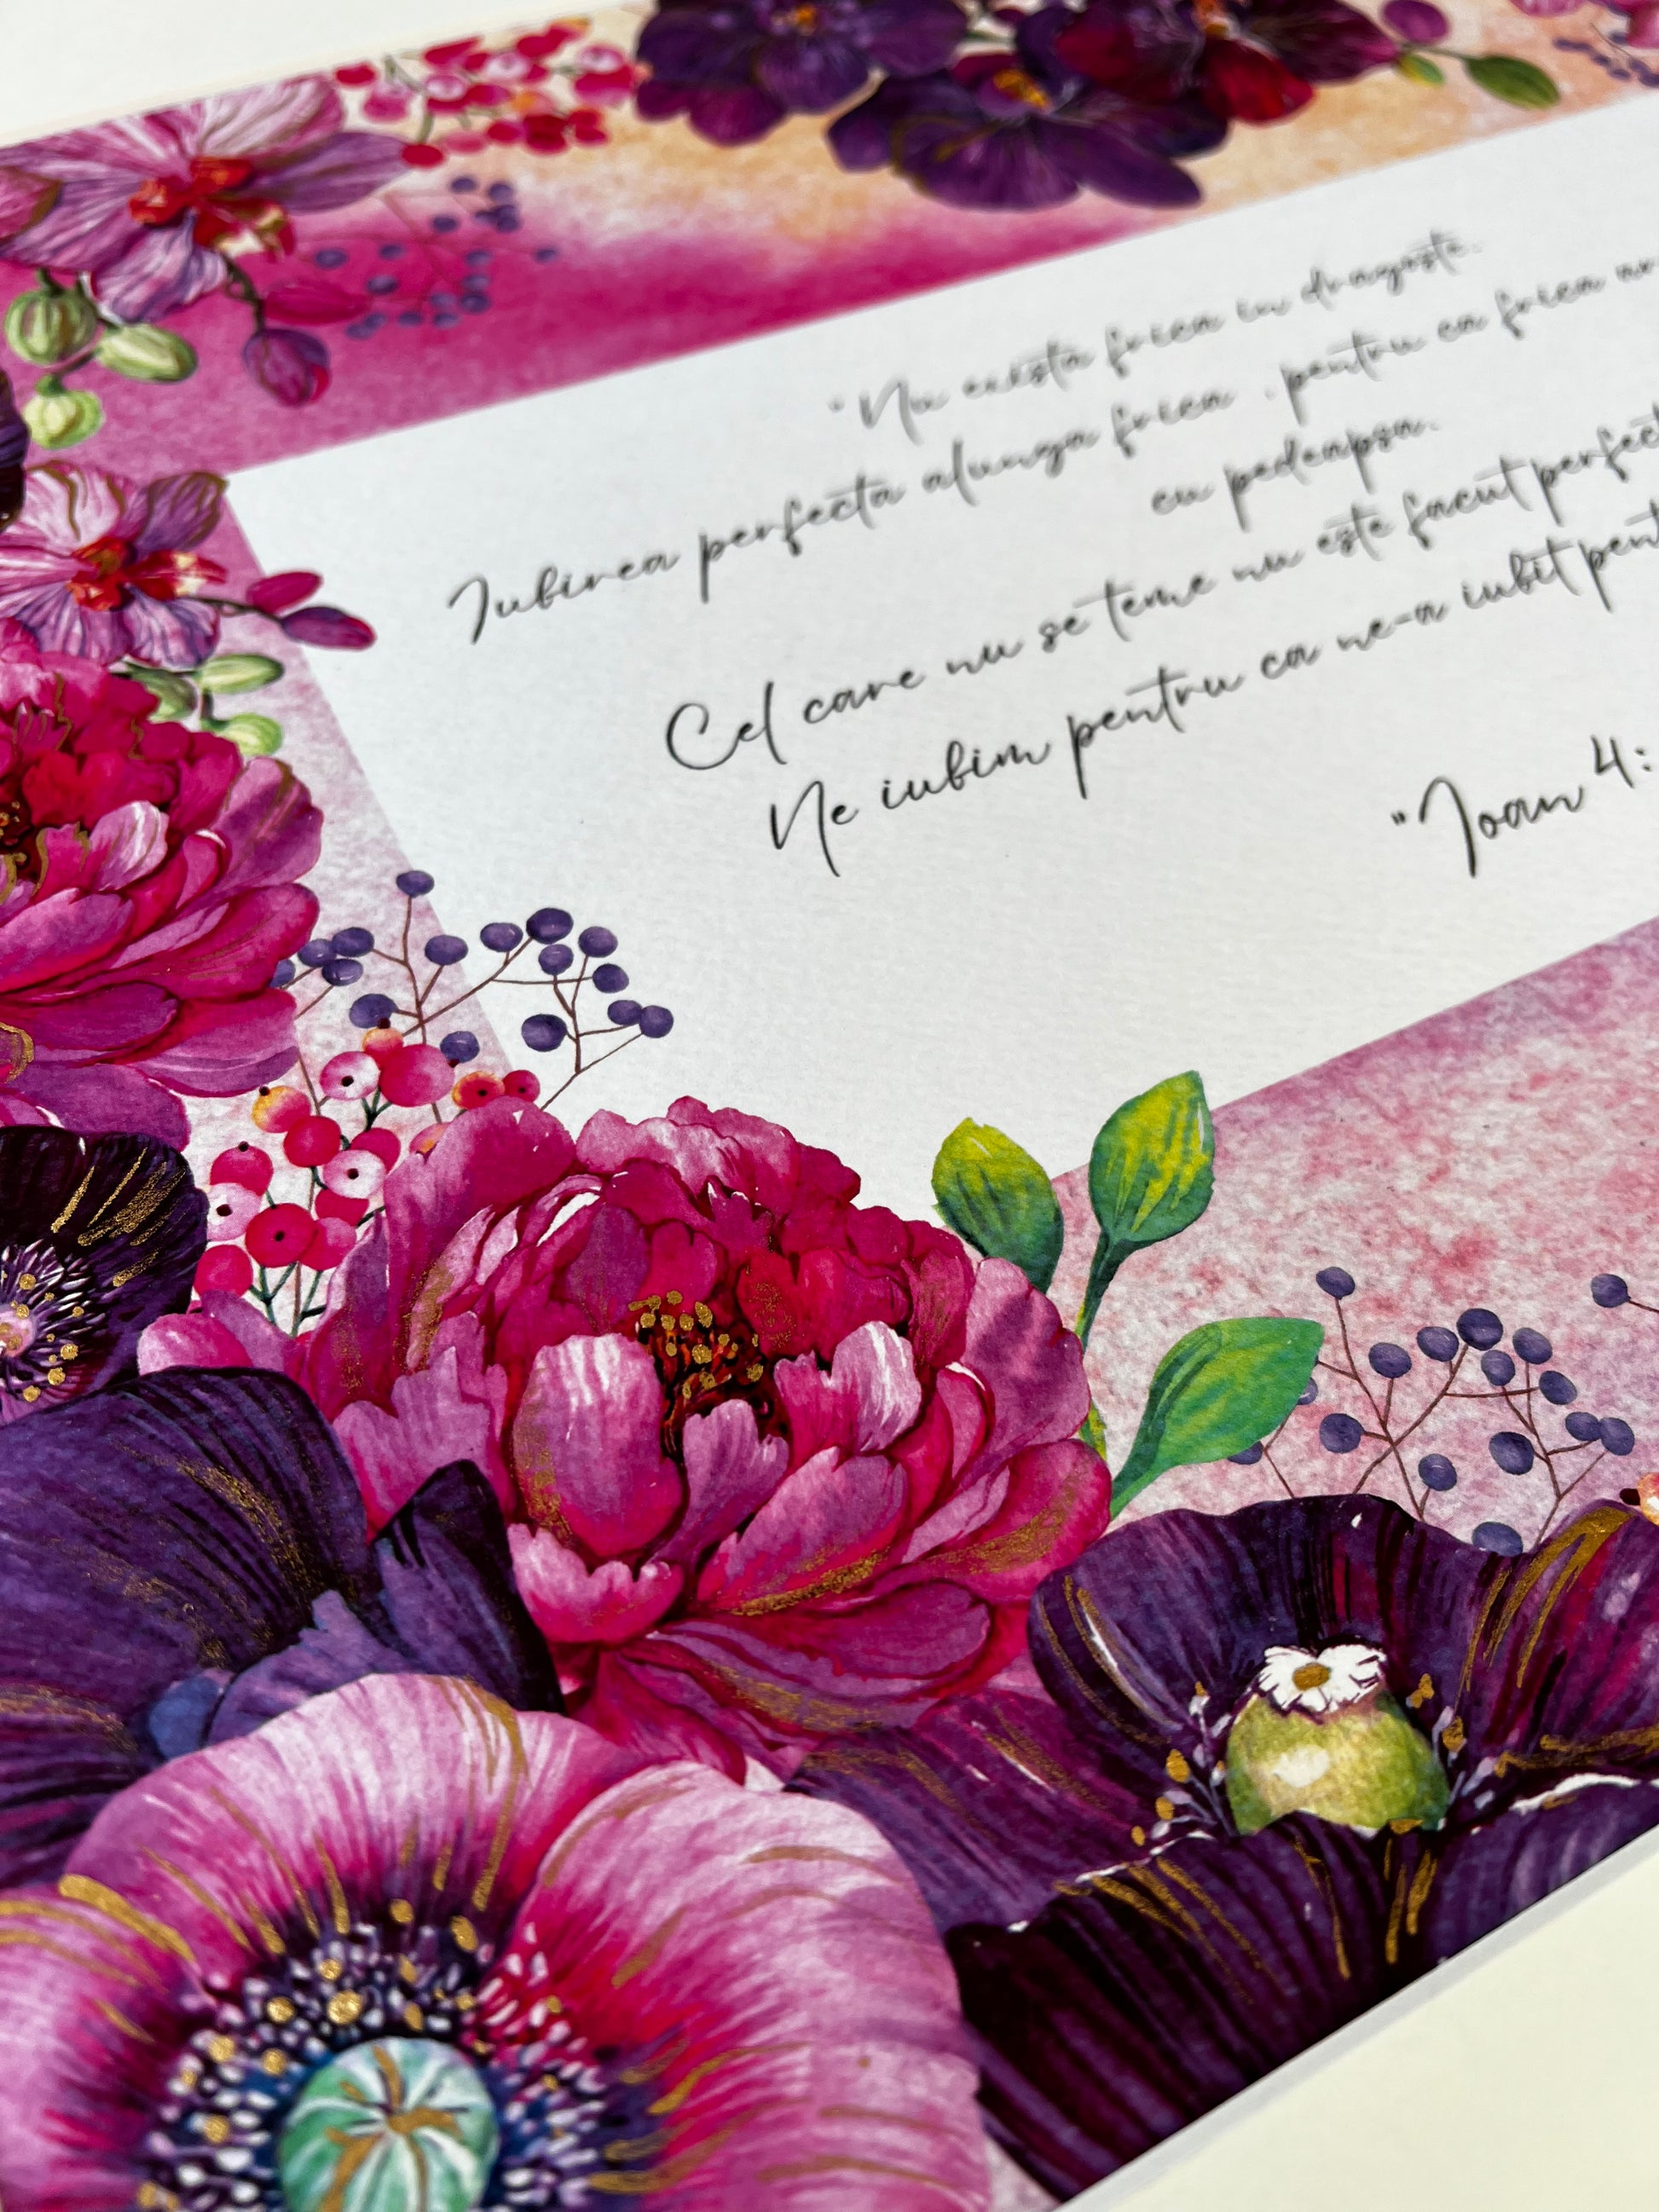 "Nu exista frica in dragoste.
Iubirea perfecta alunga frica , pentru ca frica
cu pedeapsa.
Cel care nu se teme nu este facut perfect
Ne iubim pentru ca ne-a iubit
"Ioan 4: